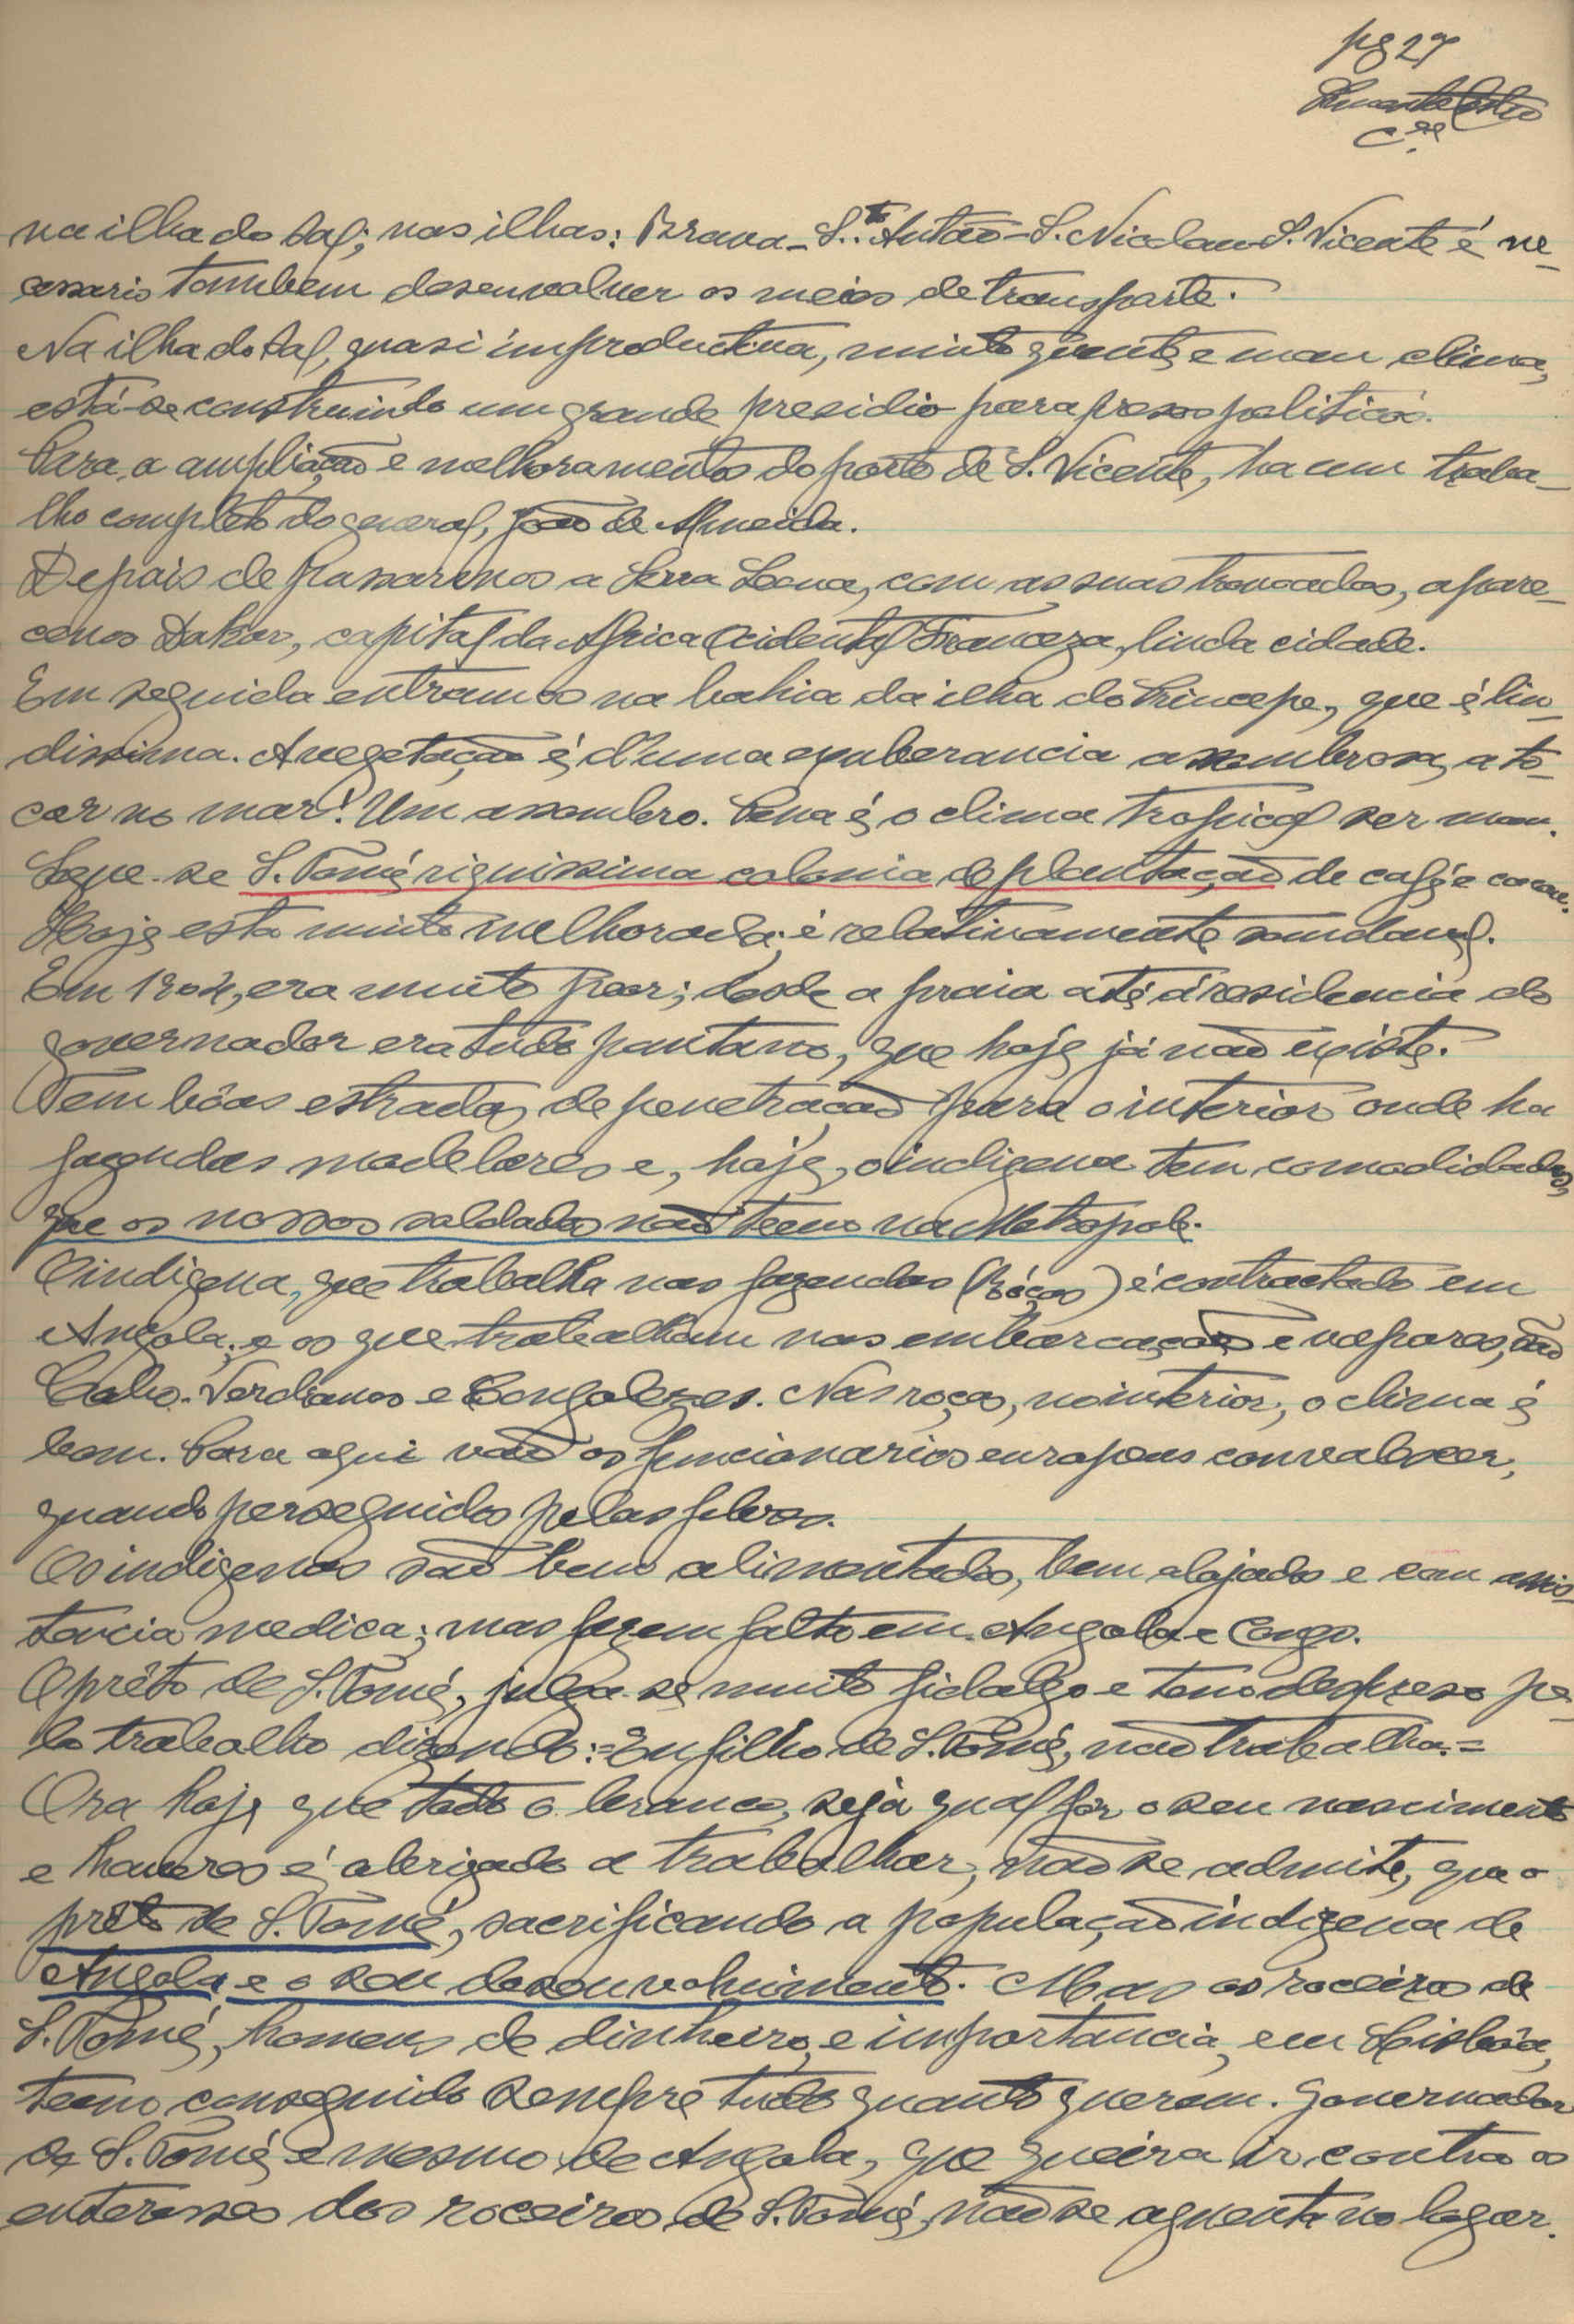 pg 27
C.el
na ilha do Sal; nas ilhas: Brava - S.to Antão - S. Nicolau - S. Vicente é ne-
cessario tambem desenvolver os meios de transporte.
Na ilha do Sal, quasi improductiva, muito quente e mau clima,
está-se construindo um grande presidio para presos politicos.
Para, a ampliação e melhoramentos do porto de S. Vicente, ha um traba-
lho completo do general, João de Almeida.
Depois de passarmos a Serra Leoa, com as suas trovoadas, apare-
ce nos Dakar, capital da Africa Ocidental Franceza, linda cidade.
Em seguida entramos na bahia da ilha do Princepe, que é lin-
dissima. A vegetação é d'uma exuberancia assombrosa, a to-
car no mar! Um assombro. Pena é, o clima tropical ser mau.
Segue-se S. Tomé, riquissima colonia de plantação de café e cacau.
Hoje esta muito melhorada; é relativamente saudavel.
Em 1904, era muito peor; desde a praia até á residencia do
governador era tudo pantano, que hoje já não existe.
Tem bôas estradas de penetração para o interior onde ha
fazendas modelares e, hoje, o indigena tem comodidades,
que os nossos soldados não teem na Metropole.
O indigena, que trabalha nas fazendas (róças) é contractado em
Angola; e os que trabalham nas embarcações e vapores, são
Cabo-Verdianos e Congolezes. Nas roças, no interior, o clima é
bom. Para aqui vão os funcionarios europeus convalescer,
quando perseguidos pelas febres.
Os indigenas são bem alimentados, bem alojados e com assis-
tencia medica; mas fazem falta em Angola e Congo.
O prêto de S. Tomé, julga-se muito fidalgo e tem despreso pe-
lo trabalho dizendo: = Eu filho de S. Tomé, não trabalha. =
Ora hoje que todo o branco, seja qual fôr o seu nascimento
e haveres é obrigado a trabalhar, não se admite, que o
prêto de S. Tomé, sacrificando a população indigena de
Angola, e o seu desenvolvimento. Mas os roceiros de
S. Tomé, homens de dinheiro, e importancia, em Lisbôa,
teem conseguido sempre tudo quanto querem. Governador
de S. Tomé e mesmo de Angola, que queira ir contra os
enteresses dos roceiros de S. Tomé, não se aguenta no logar.